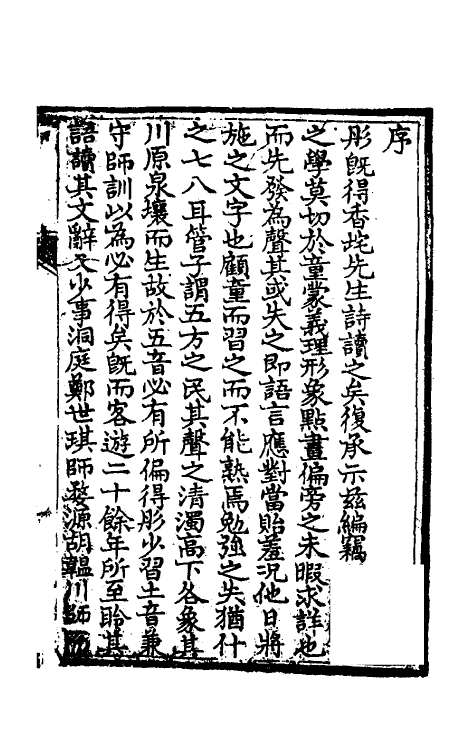 序
彤既得香垞先生詩讀之矣復承示茲編竊
之學莫切於童蒙義理形象點畫偏旁之未暇求詳也
而先發為聲其或失之即語言應對當貽羞況他日將
施之文字也顧童而習之而不能熟焉勉強之失猶什
之七八耳管子謂五方之民其聲之清濁高下各象其
川原泉壤而生故於五音必有所偏得彤少習土音兼
守師訓以為必有得矣既而客遊二十餘年所至聆其
語讀其文辭又少事洞庭鄭世琪師婺源胡韞川師